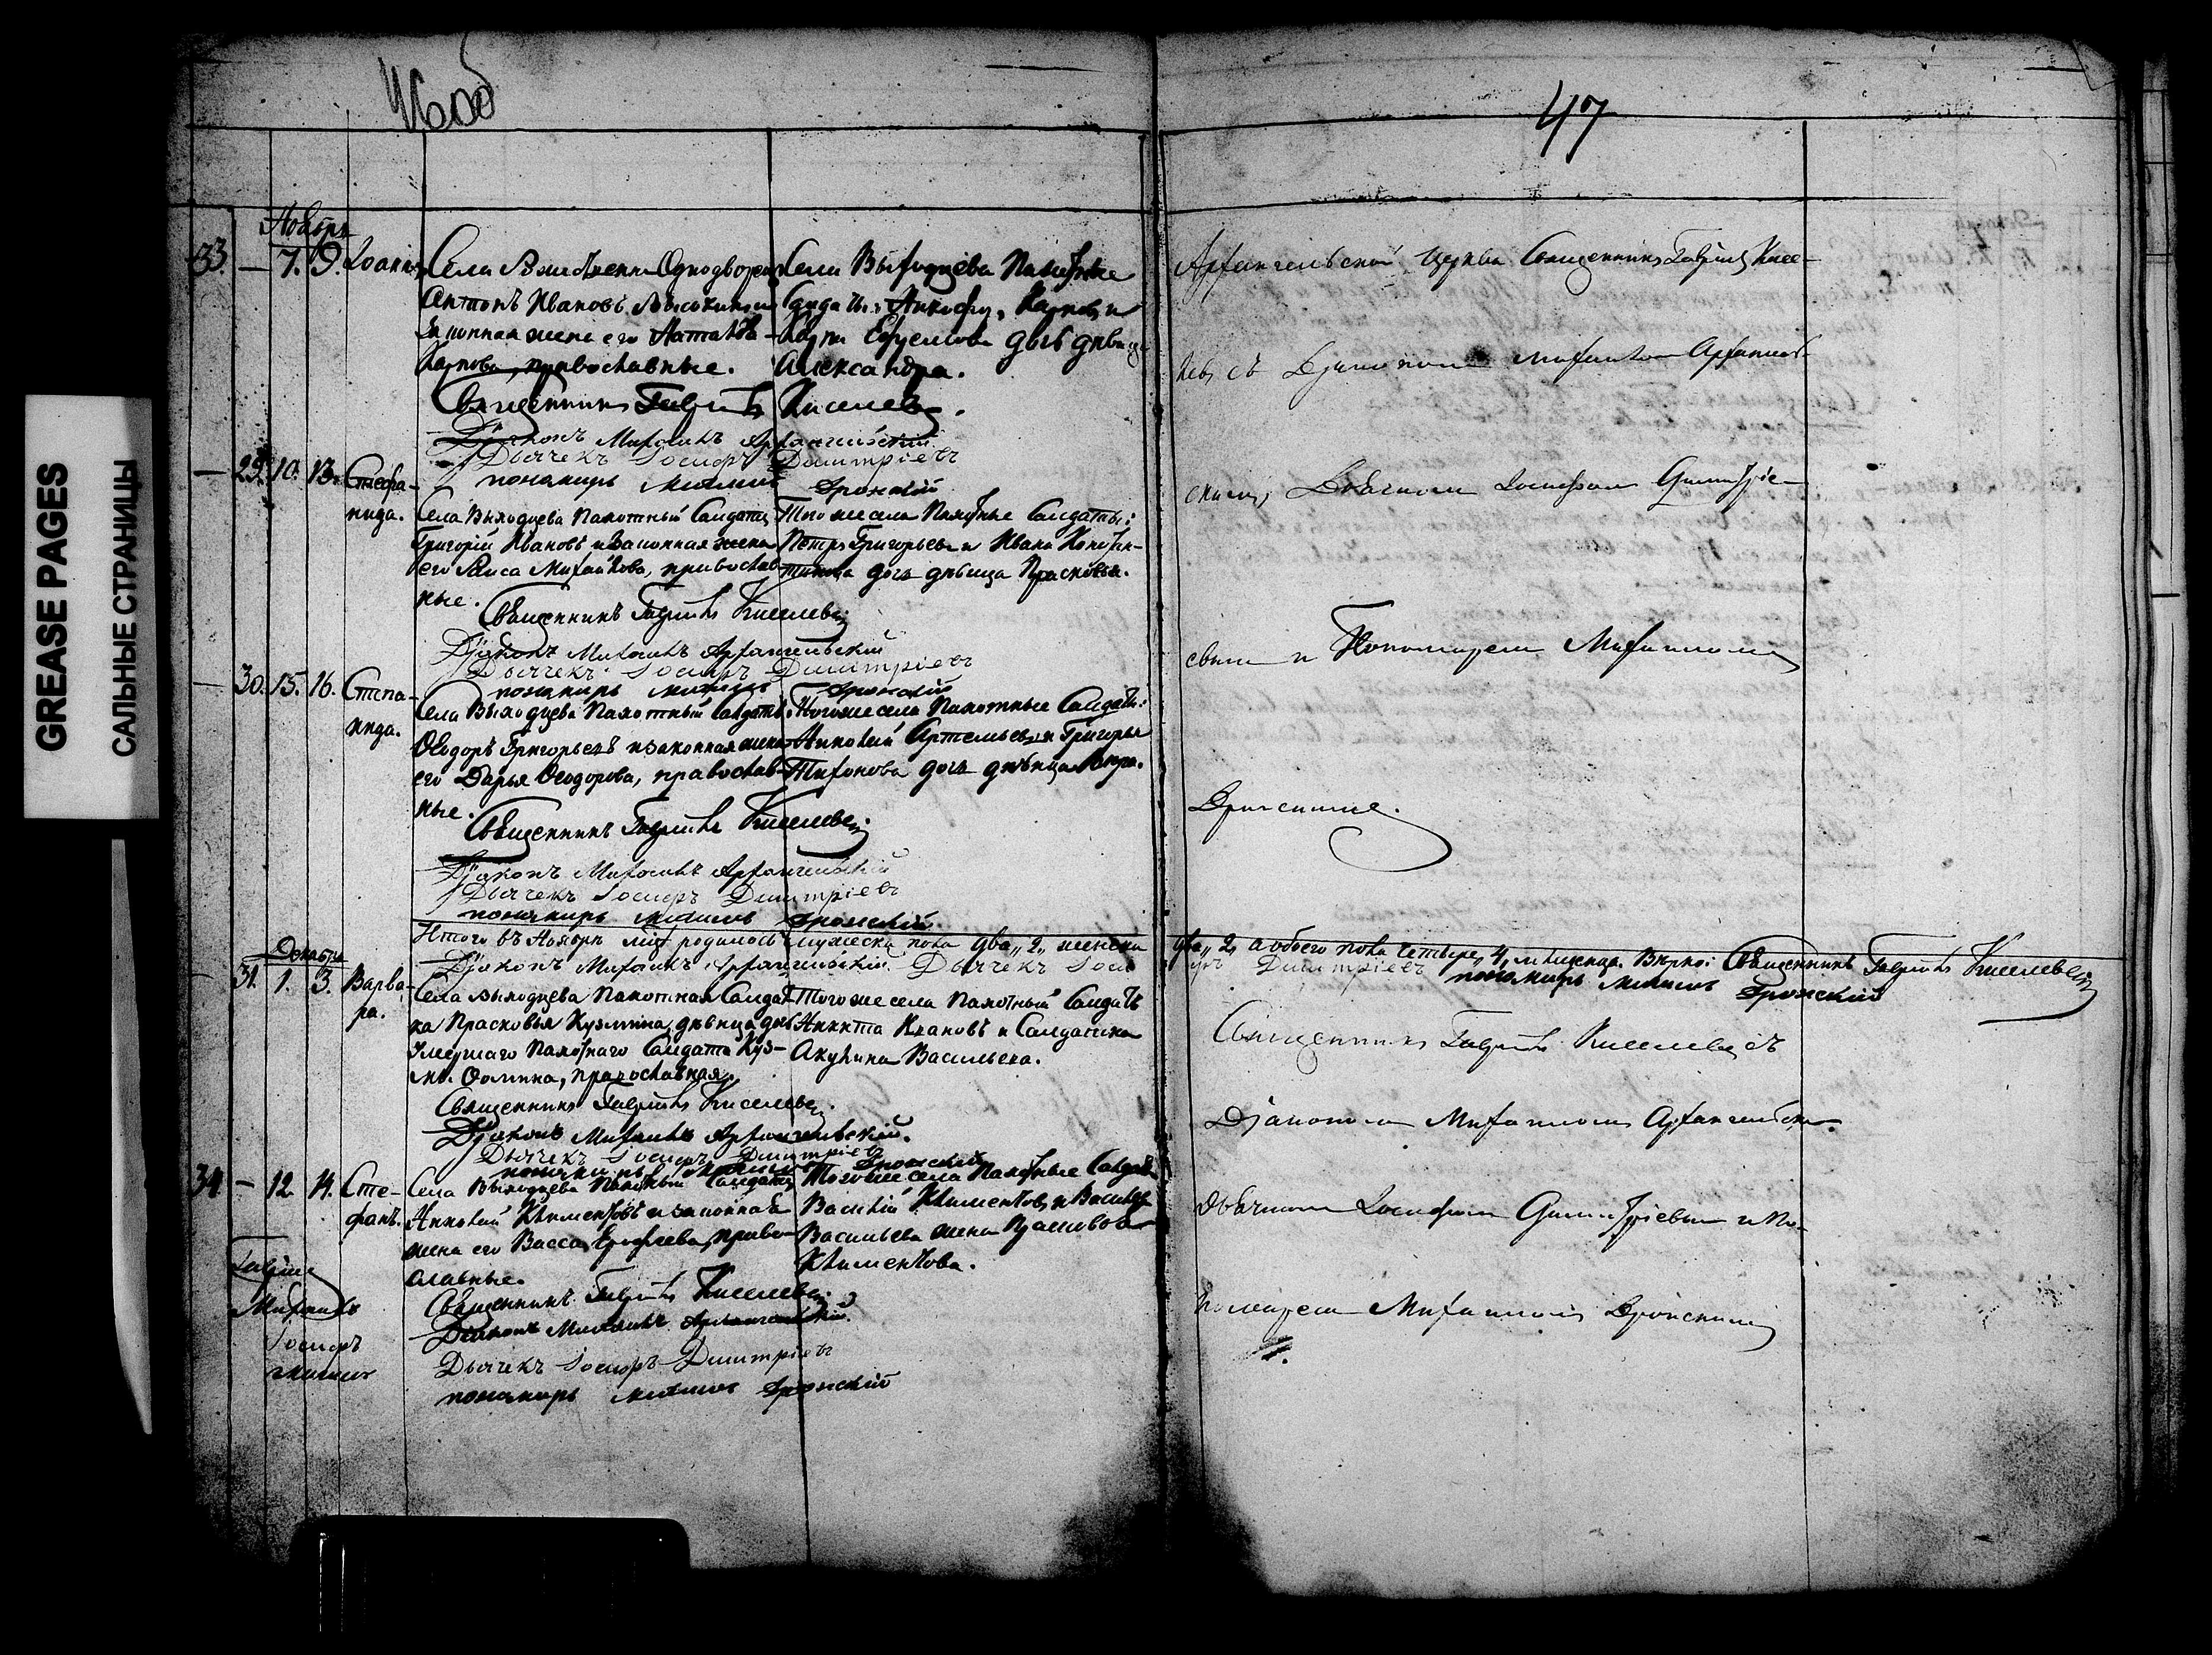 GREASE PAGES
САЛЬНЫЕ СТРАНИЦЫ
46об
47
Ноябрь
33. — 7. 9. Іоаннъ
Села Однодворецъ
Антонъ Ивановъ и
законная жена его
Карпова, православные.
Священникъ Гавріилъ Киселевъ.
Діаконъ Михаилъ Архангельскій
Дьячекъ Іосифъ Димитріевъ
пономарь Михаилъ Дронскій
Села Выходцева Пахотные
Солдаты: Карповъ и
дочь дѣвица
Александра.
— 29. 10. 13. Стефа-
нида.
Села Выходцева Пахотный Солдатъ
Григорій Ивановъ и законная жена
его Раиса Михайлова, православ-
ные.
Того же села Пахотные Солдаты:
Петръ Григорьевъ и Ивана Констан-
тинова дочь дѣвица Прасковья.
Священникъ Гавріилъ Киселевъ
Діаконъ Михаилъ Архангельскій
Дьячекъ Іосифъ Димитріевъ
пономарь Михаилъ Дронскій
— 30. 15. 16. Степа-
нида.
Села Выходцева Пахотный Солдатъ
Ѳеодоръ Григорьевъ и законная жена
его Дарья Ѳеодорова, православ-
ные.
Того же села Пахотные Солдаты:
Артемьевъ и Григорья
Тихонова дочь дѣвица
Священникъ Гавріилъ Киселевъ.
Діаконъ Михаилъ Архангельскій
Дьячекъ Іосифъ Димитріевъ
пономарь Михаилъ Дронскій.
Итого въ Ноябрѣ родилось мужеска пола два „2„ женска
два „2„ а обоего пола четыре „4„ младенца. Вѣрно: Священникъ Гавріилъ Киселевъ
Діаконъ Михаилъ Архангельскій. Дьячекъ Іоси
фъ Димитріевъ пономарь Михаилъ Дронскій
Декабрь
31. 1. 3. Варва-
ра.
Села Выходцева Пахотная Солдат-
ка Прасковья Кузьмина, дѣвица дочь
умершаго Пахотнаго Солдата Кузь-
мы Ѳомина, православная.
Того же села Пахотный Солдатъ
Никита Ивановъ и Солдатка
Акулина Васильева.
Священникъ Гавріилъ Киселевъ.
Діаконъ Михаилъ Архангельскій.
Дьячекъ Іосифъ Димитріевъ
пономарь Михаилъ Дронскій
34 — 12. 14. Сте-
фанъ.
Села Выходцева Пахотный Солдатъ
Климентовъ и законная
жена его Васса православ-
славные.
Того же села Пахотные Солдаты
Василій Климентовъ и Василья
Васильева жена
Климентова.
Священникъ Гавріилъ Киселевъ
Діаконъ Михаилъ Архангельскій.
Дьячекъ Іосифъ Димитріевъ
пономарь Михаилъ Дронскій
Гавріилъ
Михаилъ
Іосифъ
Михаилъ
Архангельской Церкви Священникъ Гавріилъ Кисе-
левъ съ Діакономъ Михаиломъ Архангель-
скимъ, Дьячкомъ Іосифомъ Димитріе-
вымъ и Пономаремъ Михаиломъ
Дронскимъ.
Священникъ Гавріилъ Киселевъ съ
Діакономъ Михаиломъ Архангельским.
Дьячкомъ Іосифомъ Димитріевымъ и По-
номаремъ Михаиломъ Дронскимъ